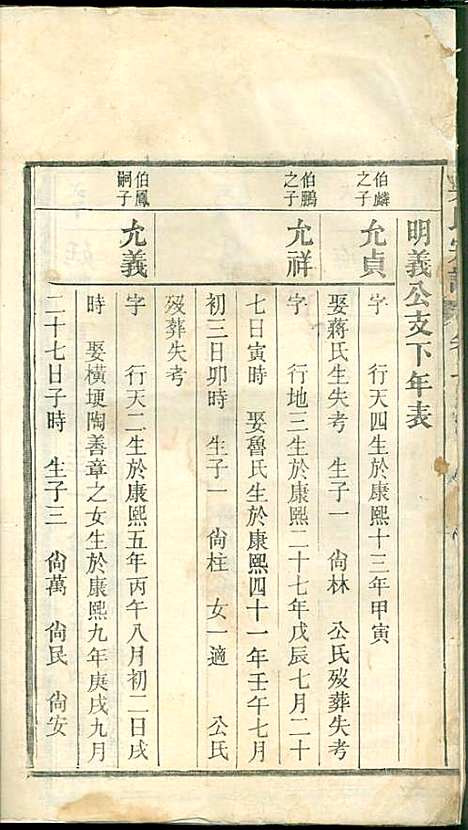 明義公支下年表
伯麟之子
允貞
字 行天四生於康熙十三年甲寅
娶蔣氏生失考 生子一 尙林 公氏歿葬失考
伯鵬之子
允祥
字 行地三生於康熙二十七年戊辰七月二十
七日寅時 娶魯氏生於康熙四十一年壬午七月
初三日卯時 生子一 尙柱 女一適 公氏
歿葬失考
伯鳳嗣子
允義
字 行天二生於康熙五年丙午八月初二日戌
時 娶橫埂陶善章之女生於康熙九年庚戌九月
二十七日子時 生子三 尙萬 尙民 尙安